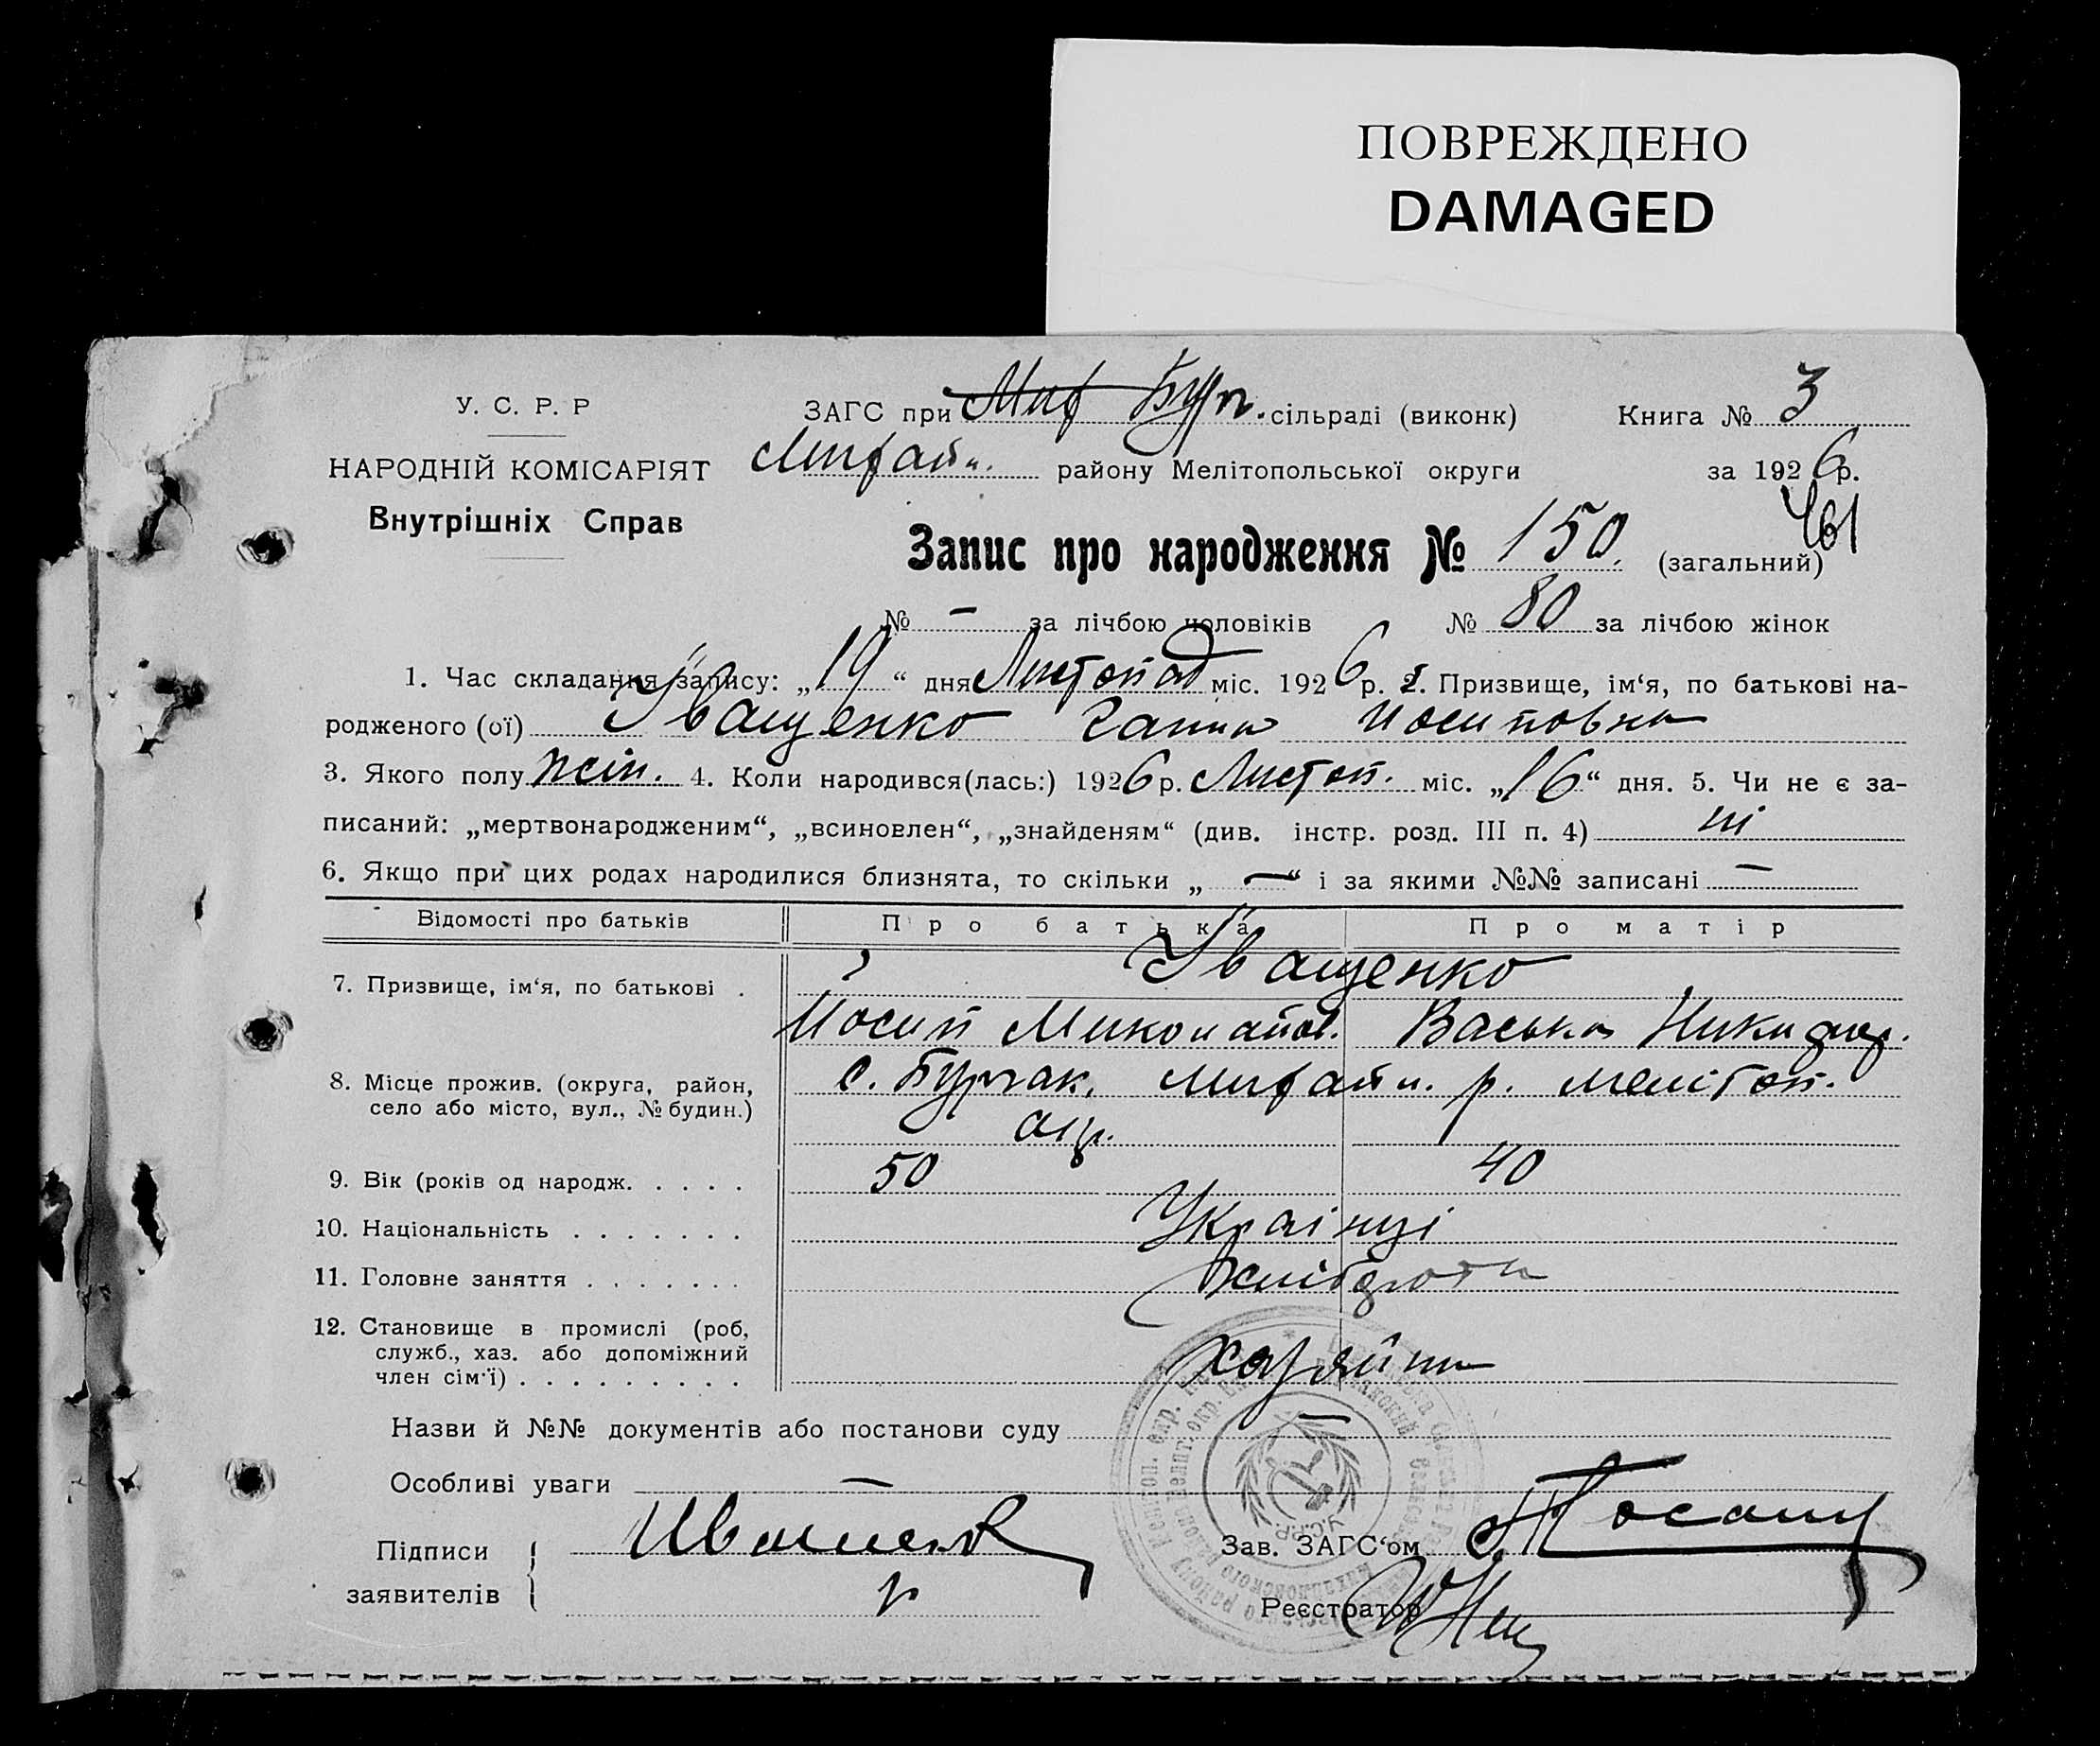 ПОВРЕЖДЕНО
DAMAGED
У. С. Р. Р
НАРОДНІЙ КОМІСАРІЯТ
Внутрішніх Справ
ЗАГС при Бурч. сільраді (виконк)
Михайл. району Мелітопольської округи
Книга № 3
за 1926 р.
461
Запис про народження № 150. (загальний)
№ – за лічбою чоловіків № 80 за лічбою жінок
1. Час складання запису: „19“ дня Листопад міс. 1926 р. 2. Призвище, ім‘я, по батькові на-
родженого (ої) Іващенко Ганна Йосиповна
3. Якого полу жін. 4. Коли народився(лась:) 1926 р. Листоп. міс. „16“ дня. 5. Чи не є за-
писаний: „мертвонародженим“, „всиновлен“, „знайденям“ (див. інстр. розд. III п. 4) ні
6. Якщо при цих родах народилися близнята, то скільки „ – “ і за якими №№ записані –
Відомості про батьків Про батька Про матір
7. Призвище, ім‘я, по батькові . Іващенко
Йосип Миколайов. Васька Никифор.
8. Місце прожив. (округа, район,
село або місто, вул., № будин.) с. Бурчак, Михайл. р. Мелітоп.
окр.
9. Вік (років од народж. . . . . 50 40
10. Національність . . . . . . . Українці
11. Головне заняття . . . . . . . Хлібороби
12. Становище в промислі (роб,
служб., хаз. або допоміжний
член сім‘ї) . . . . . . . . . хазяїни
Назви й №№ документів або постанови суду –
Особливі уваги –
Підписи
заявителів
Зав. ЗАГС‘ом
Реєстратор
У.С.Р.Р.